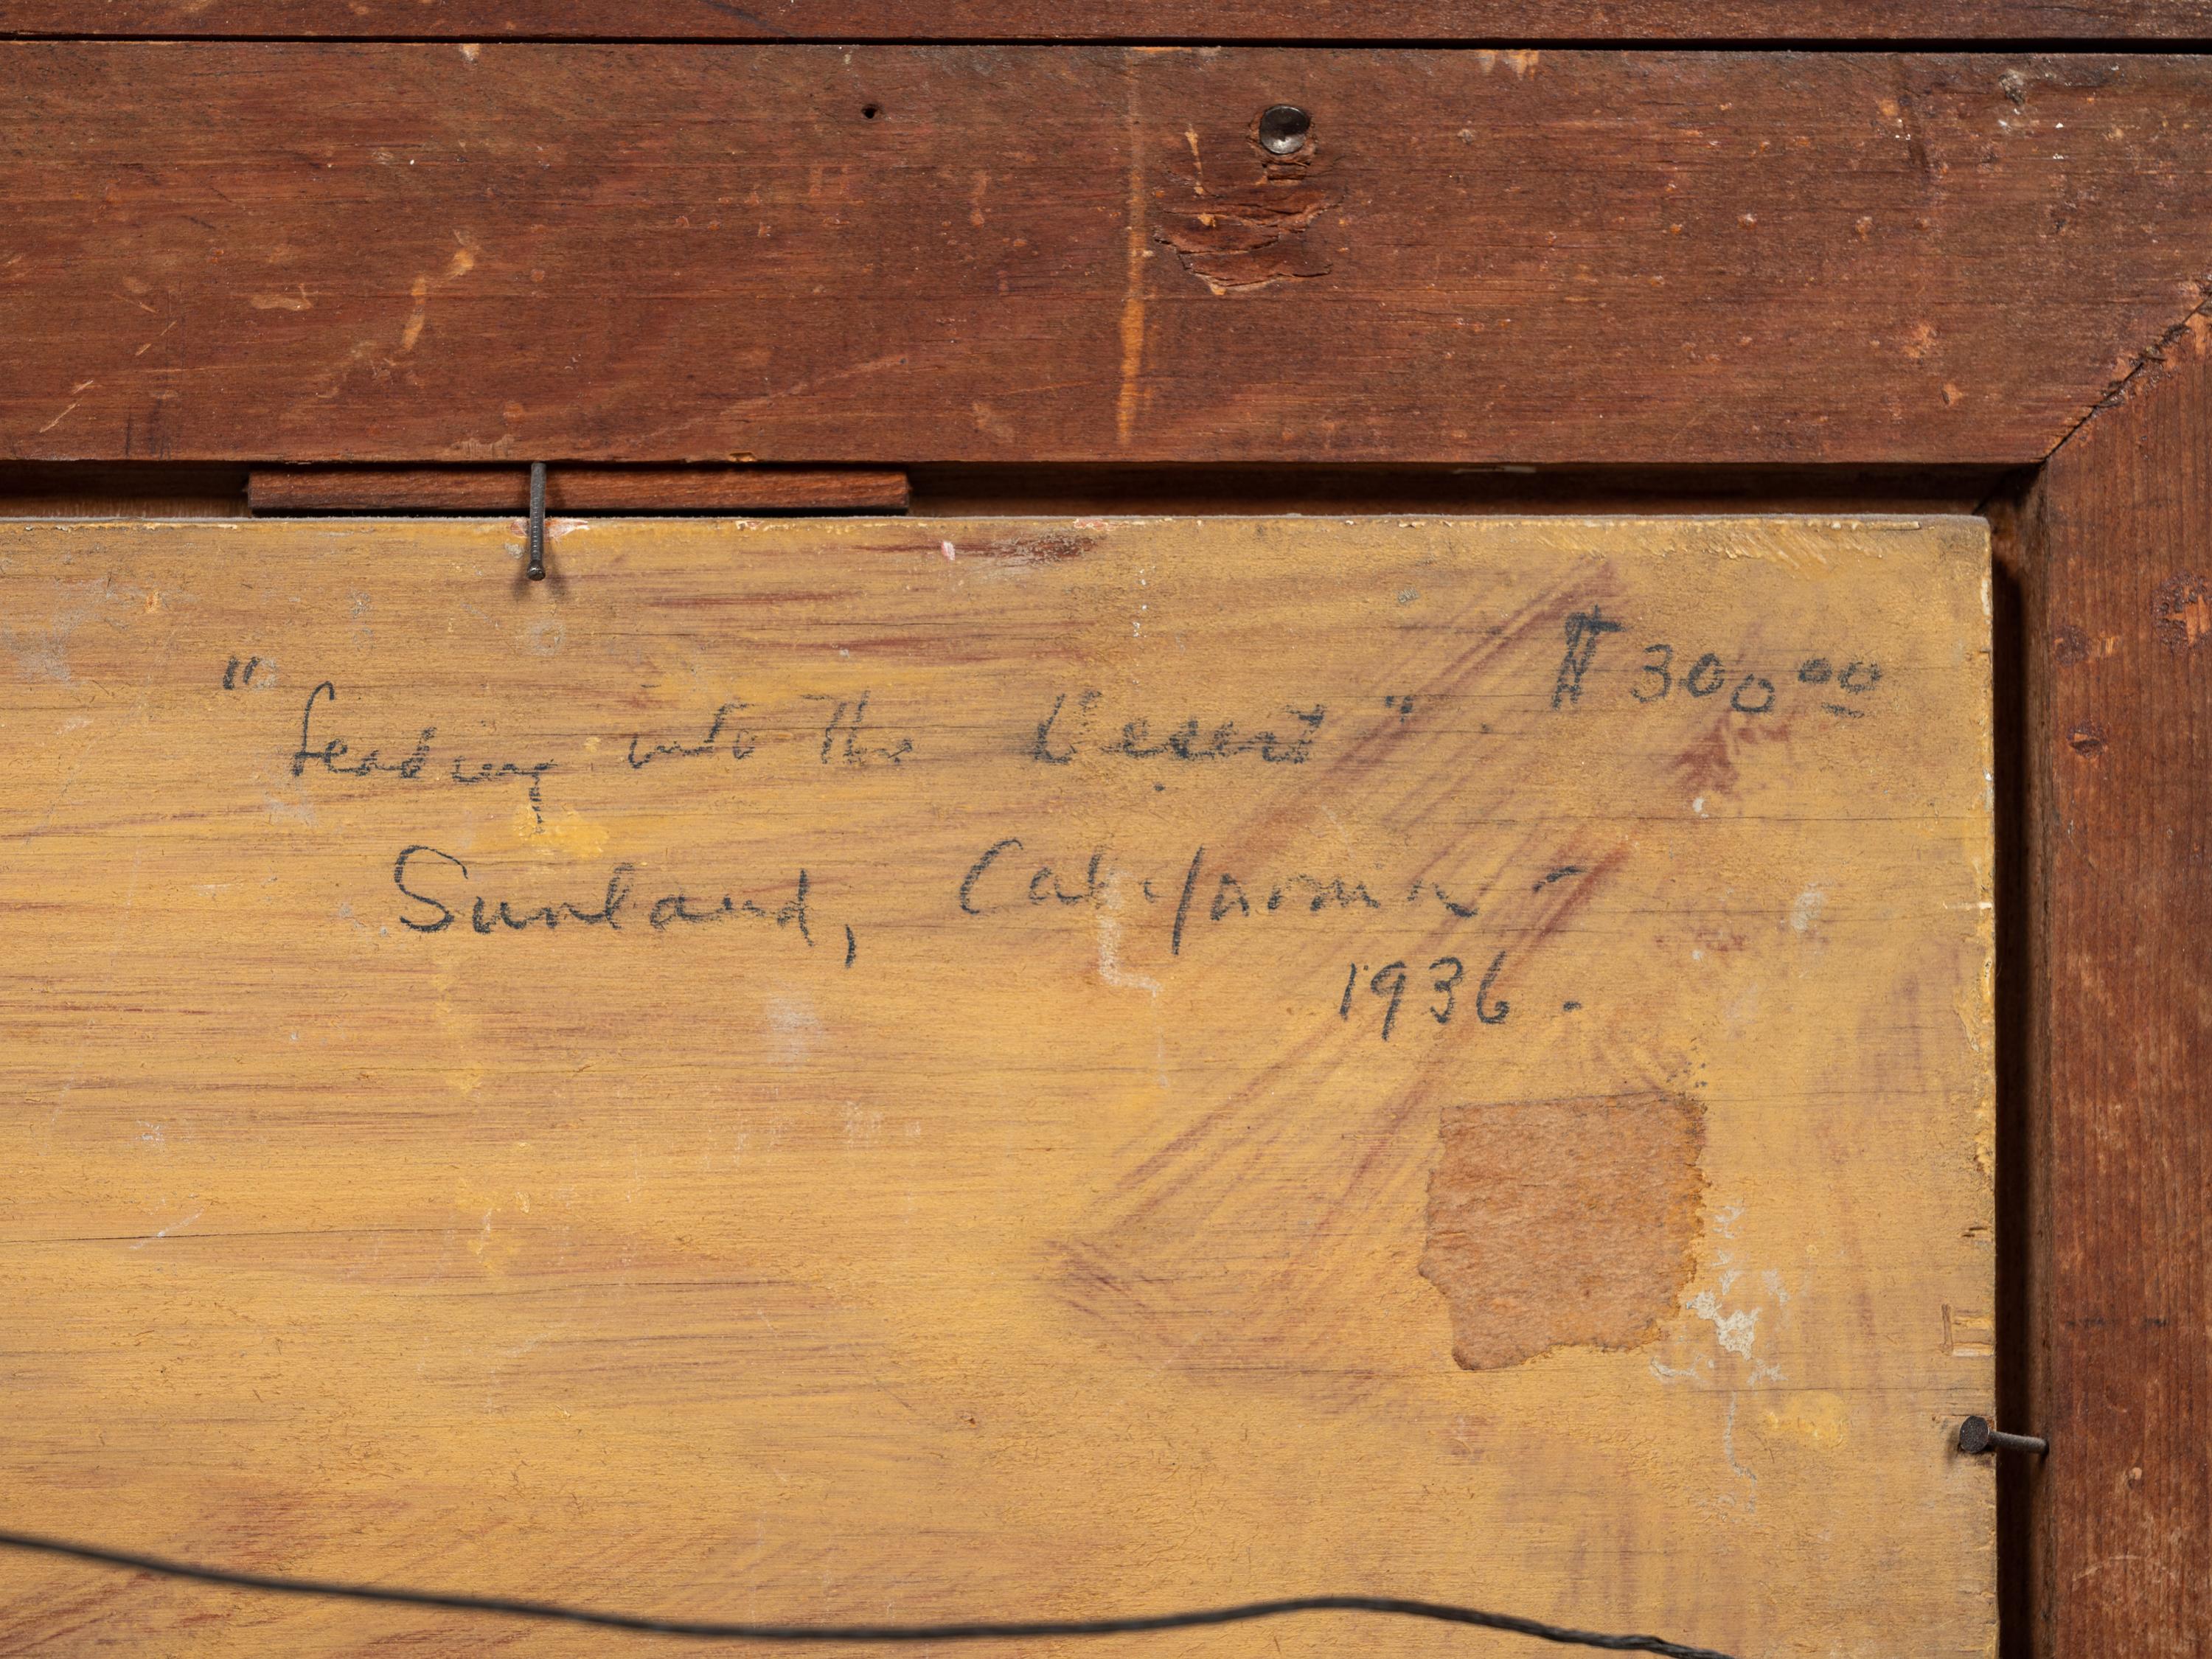 "Leading into The Desert". $300.00
Sunland, California -
1936 -